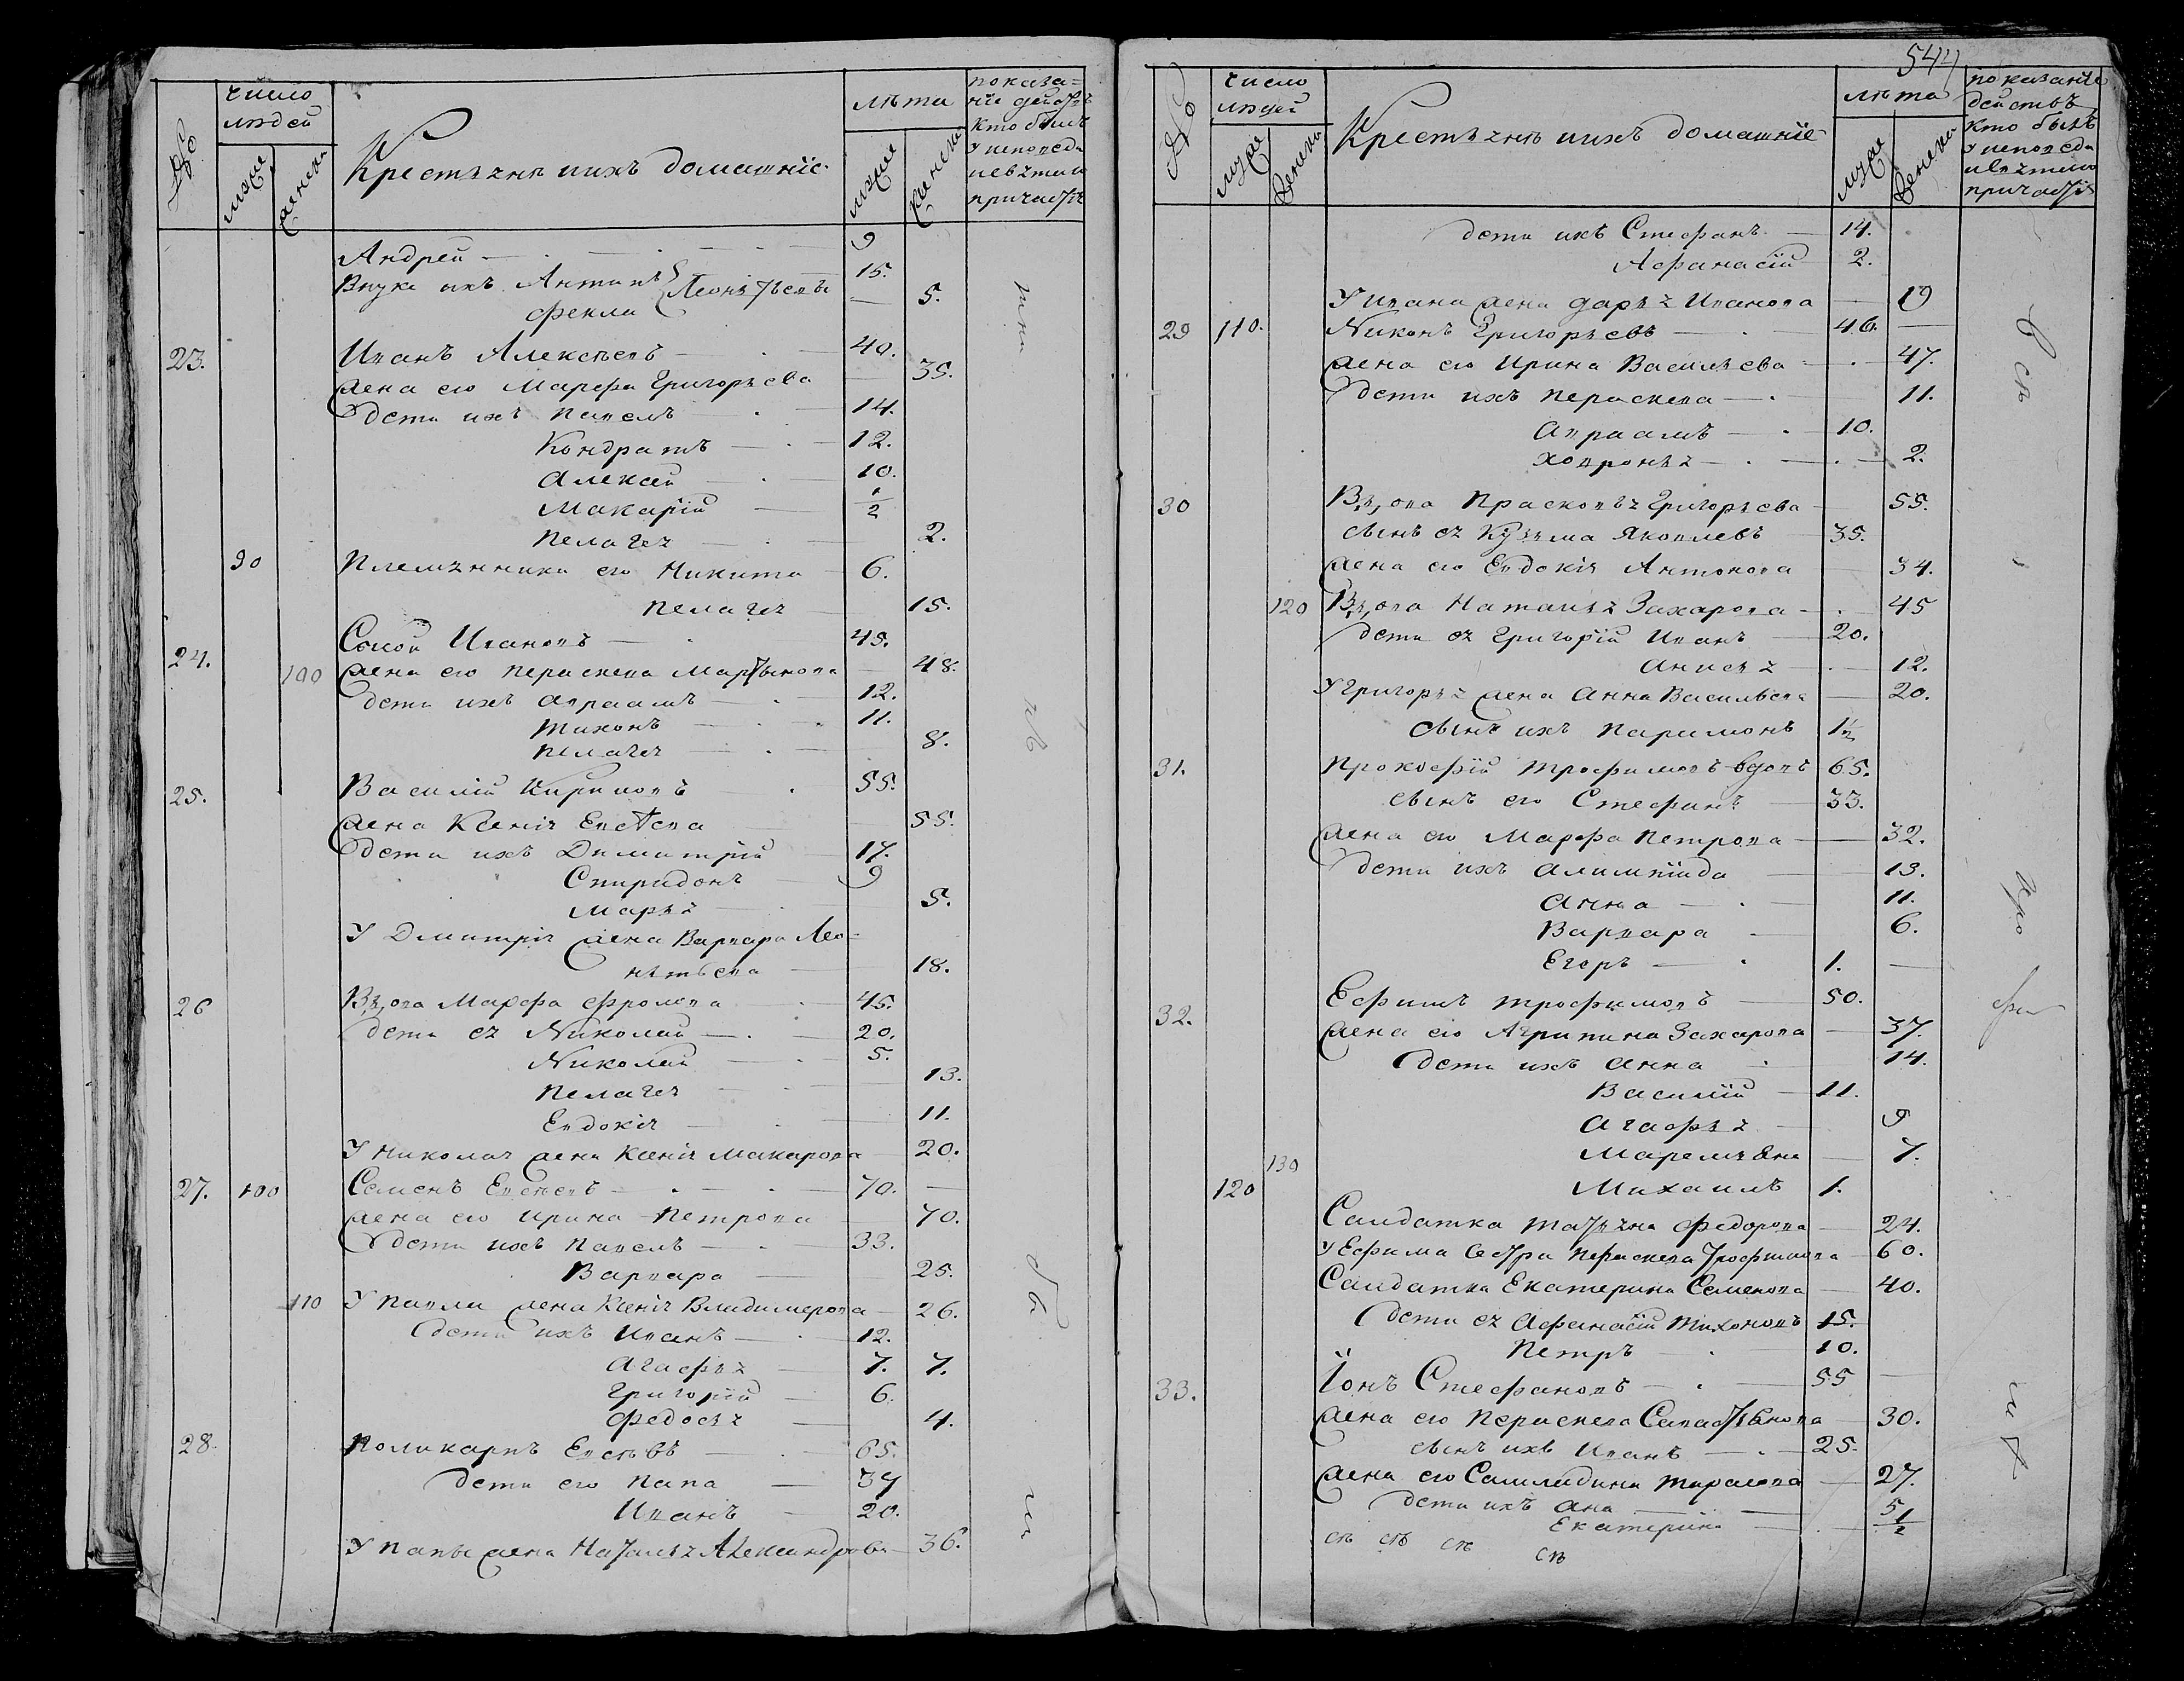 №
число людей
мужие
женски
Крестьяне и ихъ домашніе
лѣта
мужие
женски
показаніе действъ кто былъ у исповеди и святыхъ причастіи
Андрей 9
Внуки ихъ Антипъ Леонтьевы 15.
Фекла 5.
23. Иванъ Алексѣевъ 40.
жена его Марфа Григорьева 35.
дети ихъ Павелъ 14.
Кондратъ 12.
Алексей 10.
Макарій 1/2
Пелагея 2.
90 Племянники его Никита 6.
Пелагея 15.
24. Сысой Ивановъ 45.
100 жена его Параскева Мартынова 48.
дети ихъ Авраамъ 12.
Тихонъ 11.
Пелагея 8.
25. Василій Кириловъ 55.
жена Ксенія Евстева 55.
дети ихъ Димитрій 17.
Спиридонъ 9
Марья 5.
У Дмитрія жена Варвара Лео=
нтьева 18.
26 Вдова Марфа Фролова 45.
дети ея Николай 20.
Николай 5.
Пелагея 13.
Евдокія 11.
У Николая жена Ксенія Макарова 20.
27. 100 Семенъ Евсѣевъ 70.
жена его Ирина Петрова 70.
дети ихъ Павелъ 33.
Варвара 25.
110 У Павла жена Ксенія Владимерова 26.
дети ихъ Иванъ 12.
Агафья 7. 7.
Григорій 6.
Федосья 4.
28. Поликарпъ Евсѣвъ 65.
дети его Вава 37
Иванъ 20.
жена Наталья Александрова 36.
544
№
число людей
мужие
женски
Крестьяне и ихъ домашніе
лѣта
мужие
женски
показаніе действъ кто былъ у исповеди и святыхъ причастіи
дети ихъ Стефанъ 14.
Афанасій 2.
У Ивана жена Дарья Иванова 19
29 110. Никонъ Григорьевъ 46.
жена его Ирина Васильева 47.
дети ихъ Пераскева 11.
Авраамъ 10.
Ховронья 2.
30 Вдова Прасковья Григорьева 55.
сынъ ея Кузьма Яковлевъ 35.
жена его Евдокія Антонова 34.
120 Вдова Наталья Захарова 45
дети ея Григорій Иванъ 20.
Анисья 12.
У Григорья жена Анна Васильева 20.
сынъ ихъ Паримонъ 1½
31. Прокофій Трофимовъ вдовъ 65.
сынъ его Стефанъ 33.
жена его Марфа Петрова 32.
дети ихъ Алимпіада 13.
Анна 11.
Варвара 6.
Егоръ 1.
32. Ефимъ Трофимовъ 50.
жена его Агрипина Захарова 37.
дети ихъ Анна 14.
Василій 11.
Агафья 9
130 Маремъяна 7.
120 Михаилъ 1.
Салдатка Татьяна Федорова 24.
У Ефима сестра Пераскева Трофимова 60.
Салдатка Екатерина Семенова 40.
дети ея Афанасій Тихоновъ 15.
Петръ 10.
33. Іонъ Стефановъ 55
жена его Пераскева Савастьянова 30.
сынъ ихъ Иванъ 25.
жена его 27.
дети ихъ Ана 5
Екатерина 1/2